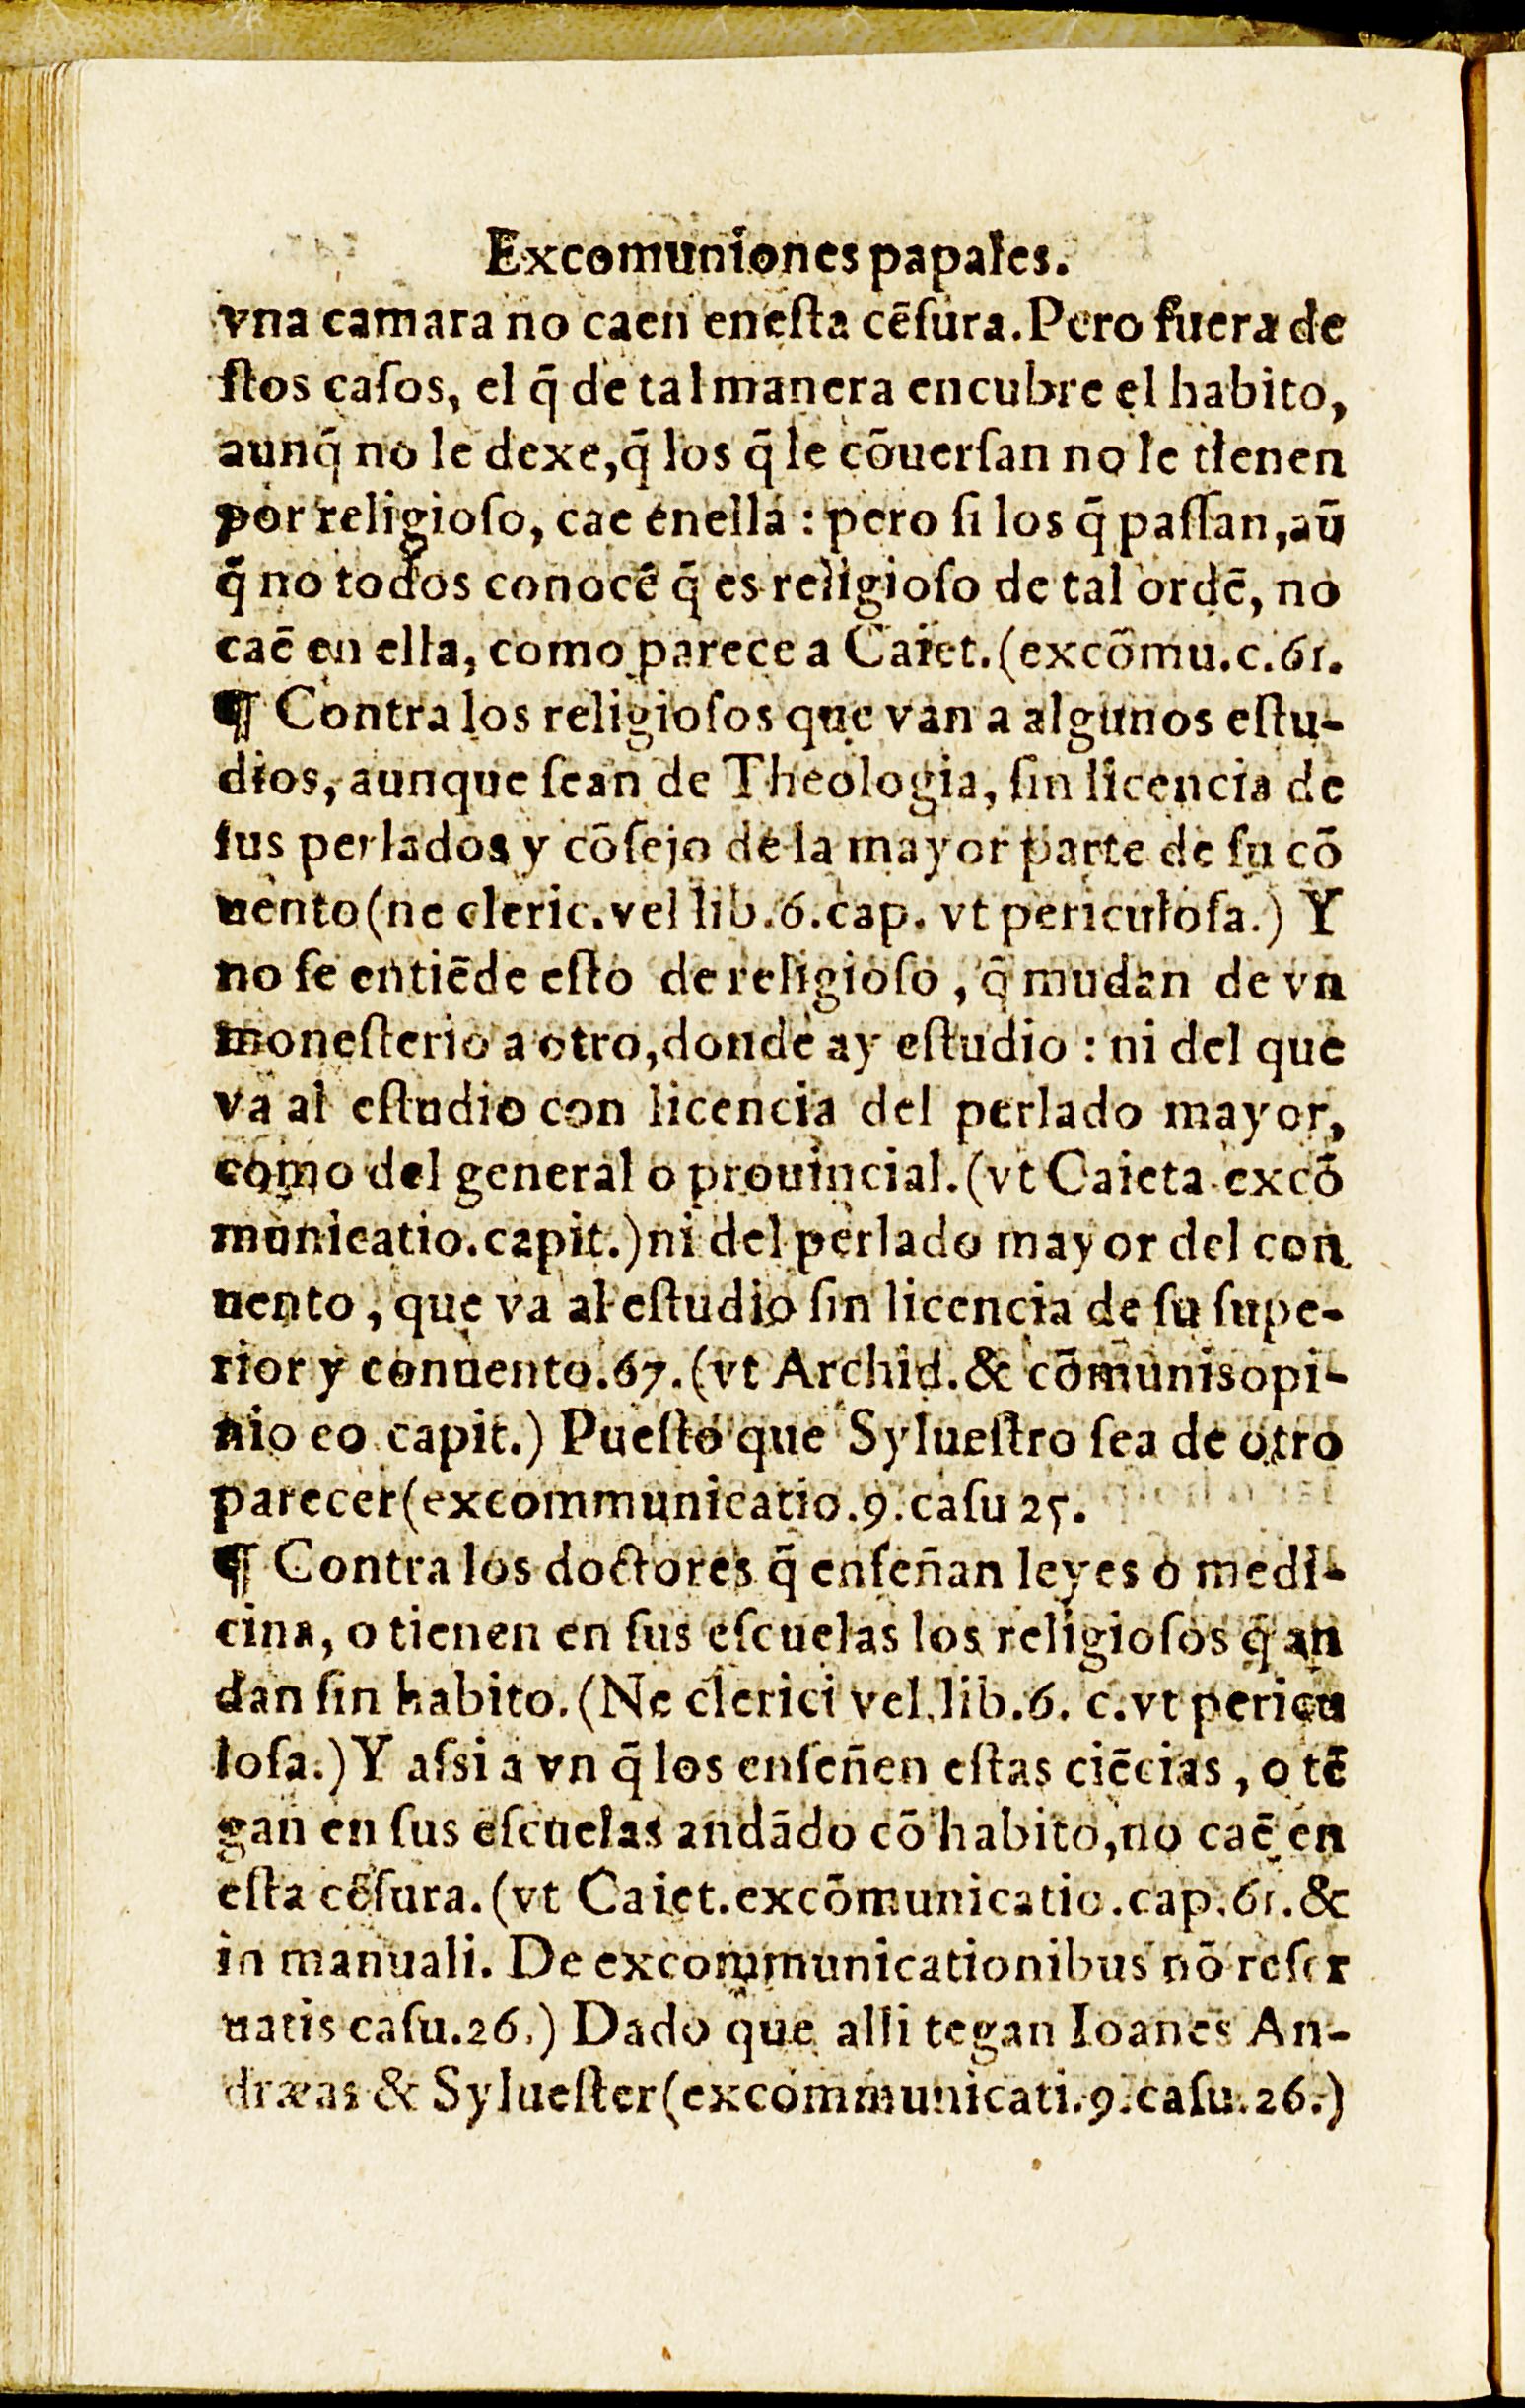 Excomuniones papales.
vna camara no caen enesta cēsura. Pero fuera de
stos casos, el q̄ de tal manera encubre el habito,
aunq̄ no le dexe, q̄ los q̄ le cōuersan no le tienen
por religioso, cae enella : pero si los q̄ passan, aū
q̄ no todos conocē q̄ es religioso de tal ordē, no
caē en ella, como parece a Caiet. (excōmu.c.61.
¶ Contra los religiosos que van a algunos estu-
dios, aunque sean de Theologia, sin licencia de
sus perlados y cōsejo de la mayor parte de su cō
uento (ne cleric. vel lib.6. cap. vt periculosa.) Y
no se entiēde esto de religioso, q̄ mudan de vn
monesterio a otro, donde ay estudio : ni del que
va al estudio con licencia del perlado mayor,
como del general o prouincial. (vt Caieta. excō
municatio. capit.) ni del perlado mayor del con
uento, que va al estudio sin licencia de su supe-
rior y conuento. 67. (vt Archid. & cōmunis opi-
nio eo capit.) Puesto que Syluestro sea de otro
parecer (excommunicatio. 9. casu 25.
¶ Contra los doctores q̄ enseñan leyes o medi-
cina, o tienen en sus escuelas los religiosos q̄ an
dan sin habito. (Ne clerici vel. lib. 6. c. vt pericu
losa.) Y assi a vn q̄ los enseñen estas ciēcias, o tē
gan en sus escuelas andādo cō habito, no caē en
esta cēsura. (vt Caiet. excōmunicatio. cap. 61. &
in manuali. De excommunicationibus nō reser
uatis casu. 26.) Dado que alli tegan Ioanes An-
dræas & Syluester (excommunicati. 9. casu. 26.)